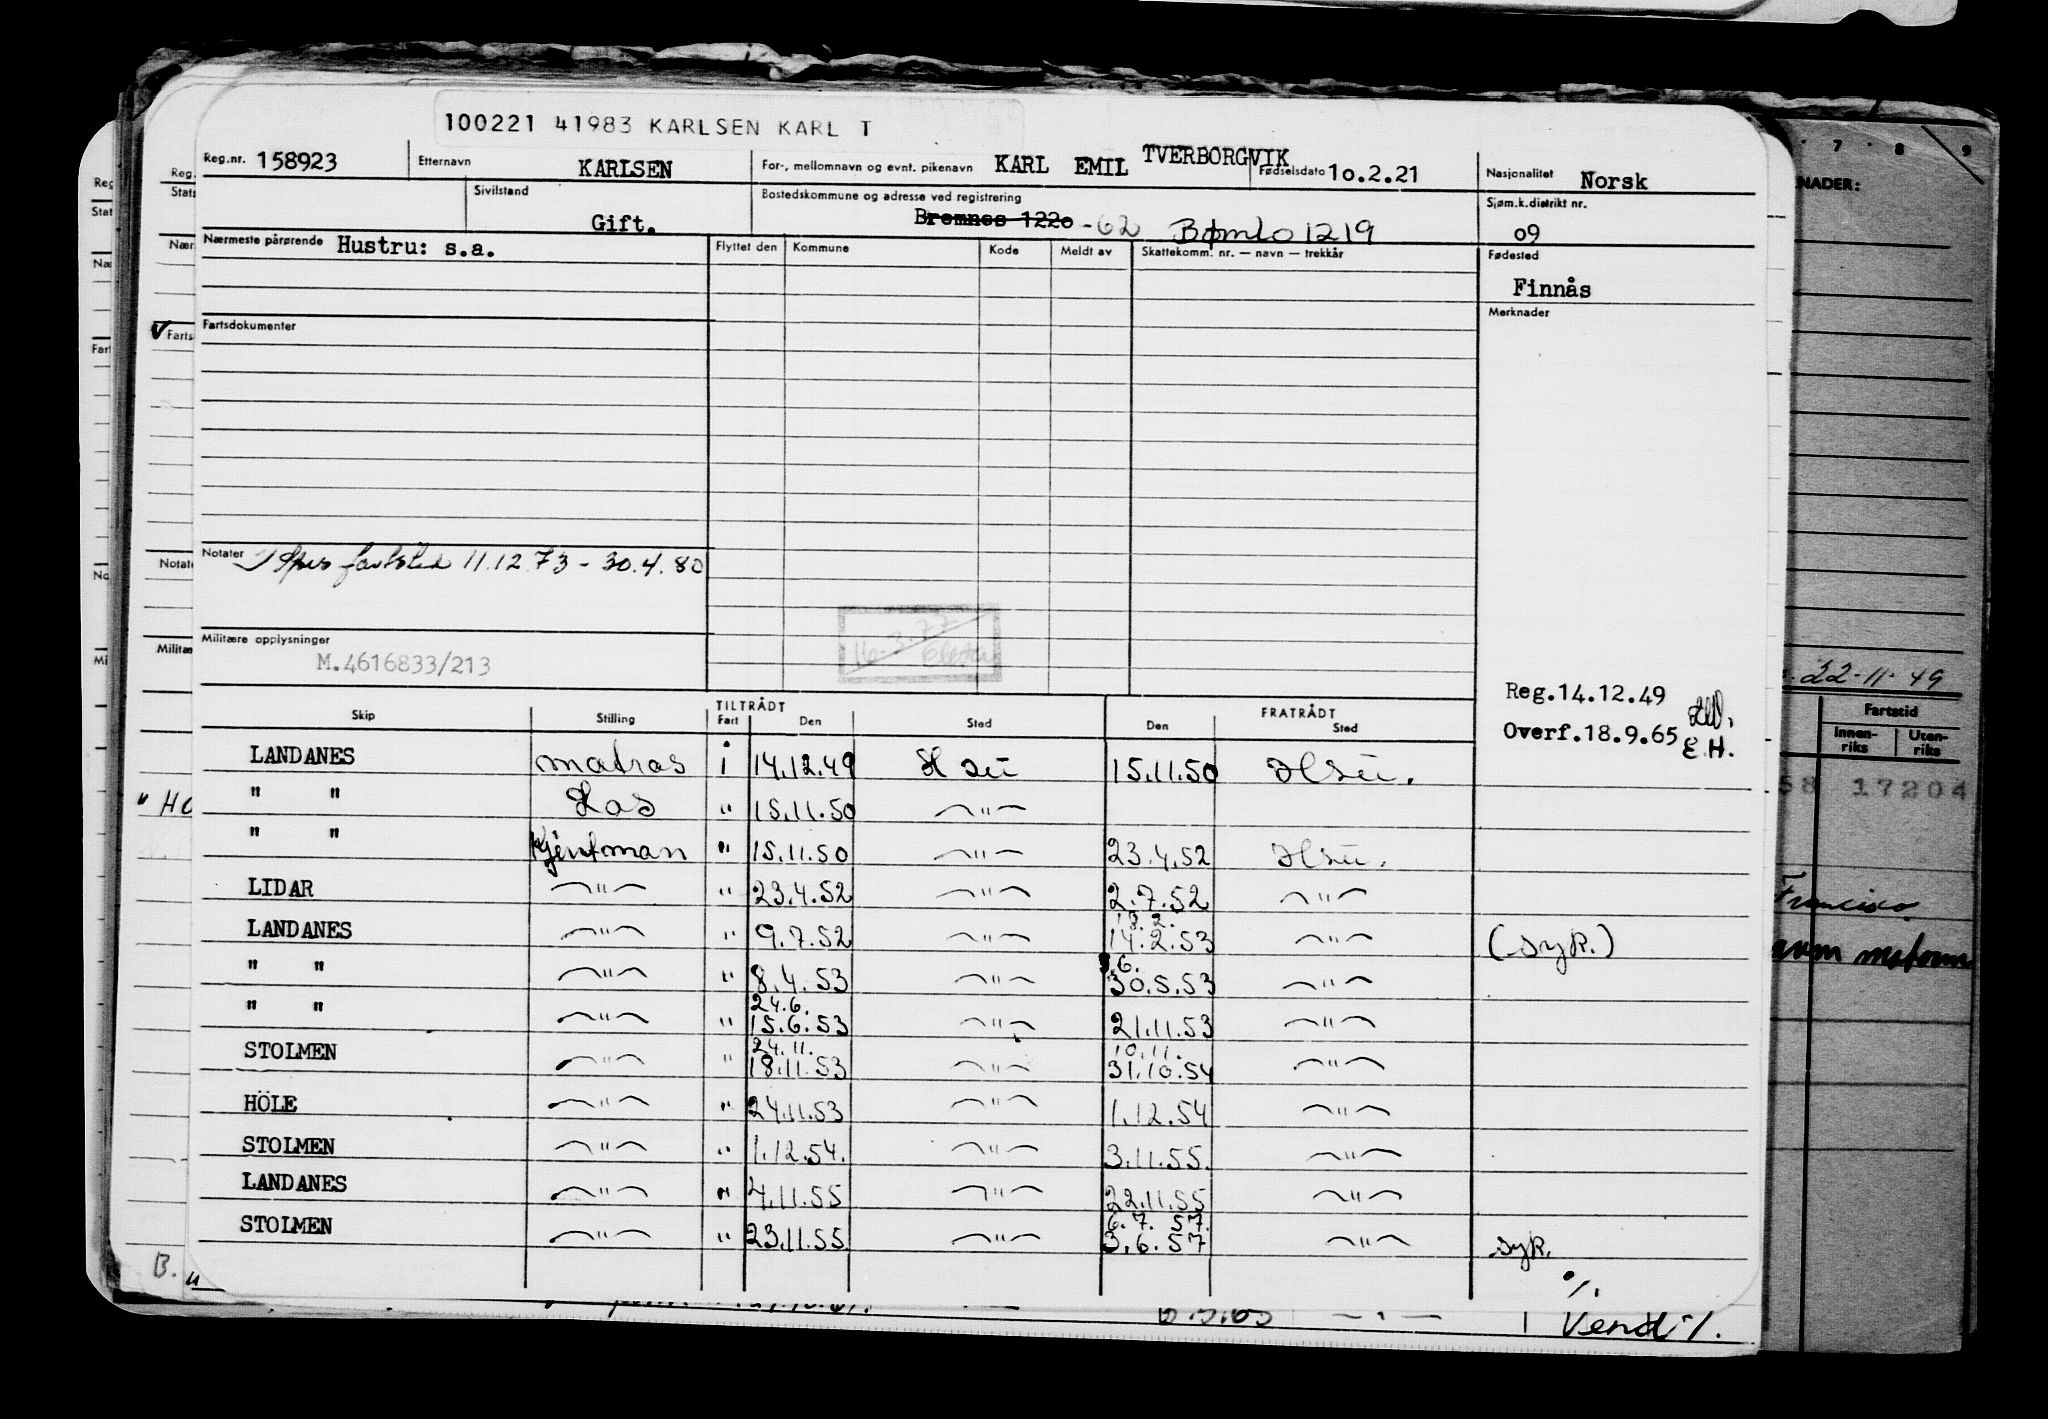 100221 41983 KARLSEN KARL T
Reg.nr. 158923 Etternavn KARLSEN For-, mellomnavn og evnt. pikenavn KARL EMIL TVERBORGVIK Fødselsdato 10.2.21 Nasjonalitet Norsk
Sivilstand Gift. Bostedskommune og adresse ved registrering Bremnes 1220 -62 Bømlo 1219 Sjøm.k.distrikt nr. 09
Nærmeste pårørende Hustru: s.a. Flyttet den Kommune Kode Meldt av Skattekomm. nr. — navn — trekkår Fødested
Finnås
Merknader
Fartsdokumenter
Notater 11.12.73 - 30.4.80
16.3.77
Militære opplysninger
M.4616833/213
Reg.14.12.49
Overf.18.9.65 E.H.
TILTRÅDT FRATRÅDT
Skip Stilling Fart Den Sted Den Sted
LANDANES matros i 14.12.49 H su 15.11.50 Hsu.
" " Los " 15.11.50 — " —
" " Kjentman " 15.11.50 — " — 23.4.52 Hsu.
LIDAR — " — " 23.4.52 — " — 2.7.52 — " —
13.2.
LANDANES — " — " 9.7.52 — " — 14.2.53 — " — (syk.)
6.
" " — " — " 8.4.53 — " — 30.5.53 — " —
24.6.
" " — " — " 15.6.53 — " — 21.11.53 — " —
24.11. 10.11.
STOLMEN — " — " 18.11.53 — " — 31.10.54 — " —
HÖLE — " — " 24.11.53 — " — 1.12.54 — " —
STOLMEN — " — " 1.12.54. — " — 3.11.55. — " —
LANDANES — " — " 4.11.55 — " — 22.11.55 — " —
6.7.57.
STOLMEN — " — " 23.11.55. — " — 3.6.57 — " — syk.
%.
Vend!
B. "
7 8 9
NADER:
22-11-49
Fartstid
Innen-riks Uten-riks
58 17204
Francisco